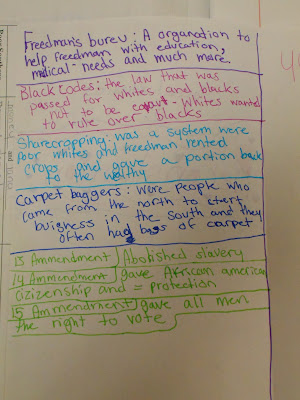 Freedman's bureu: A organation to
help freedman with education,
medical-needs and much more.
Black Codes: the law that was
passed for whites and blacks
not to be equal - whites wanted
to rule over blacks
Sharecropping: was a system were
poor whites and freedman rented
crops and gave a portion back
to the wealthy
Carpet baggers: Were people who
came from the north to start
buisness in the south and they
often had bags of carpet
13 Ammendment Abolished slavery
14 Ammendment gave Afriican american
citizenship and = protection
15 Ammendment gave all men
the right to vote